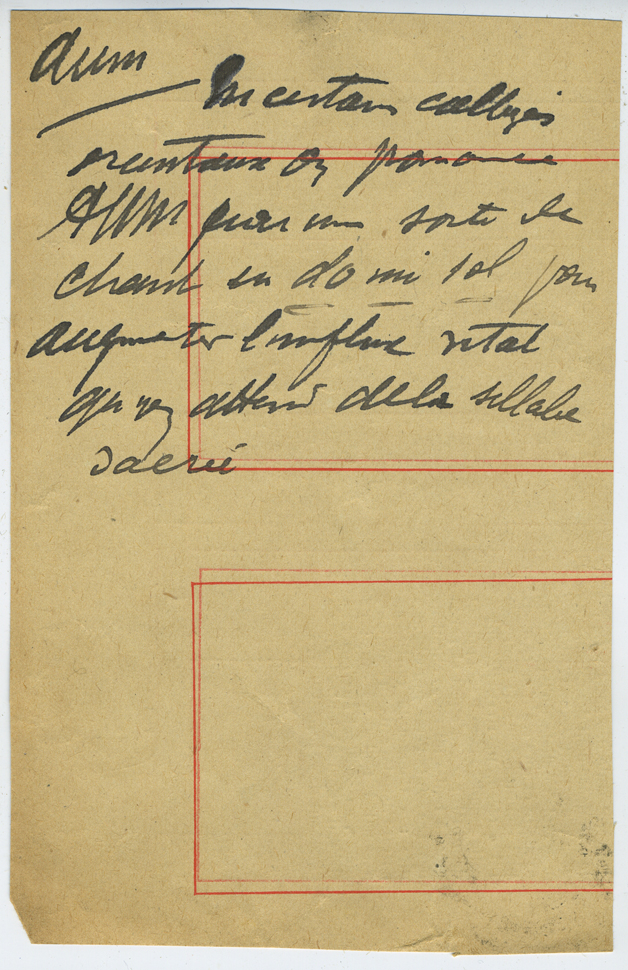 Aum
In certains collèges
orientaux on prononce
AUM par une sorte de
chant en do mi sol pour
augmenter l'influx vital
qu'on attend de la sillabe
sacrée